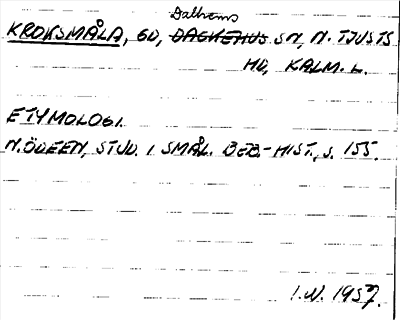 Dalhems
KROKSMÅLA, GD, DACKEHUS SN, N. TJUSTS
HD, KALM. L.
ETYMOLOGI.
N. ÖDEEN, STUD. I SMÅL. BEB.-HIST., S. 155.
I.N. 1957.